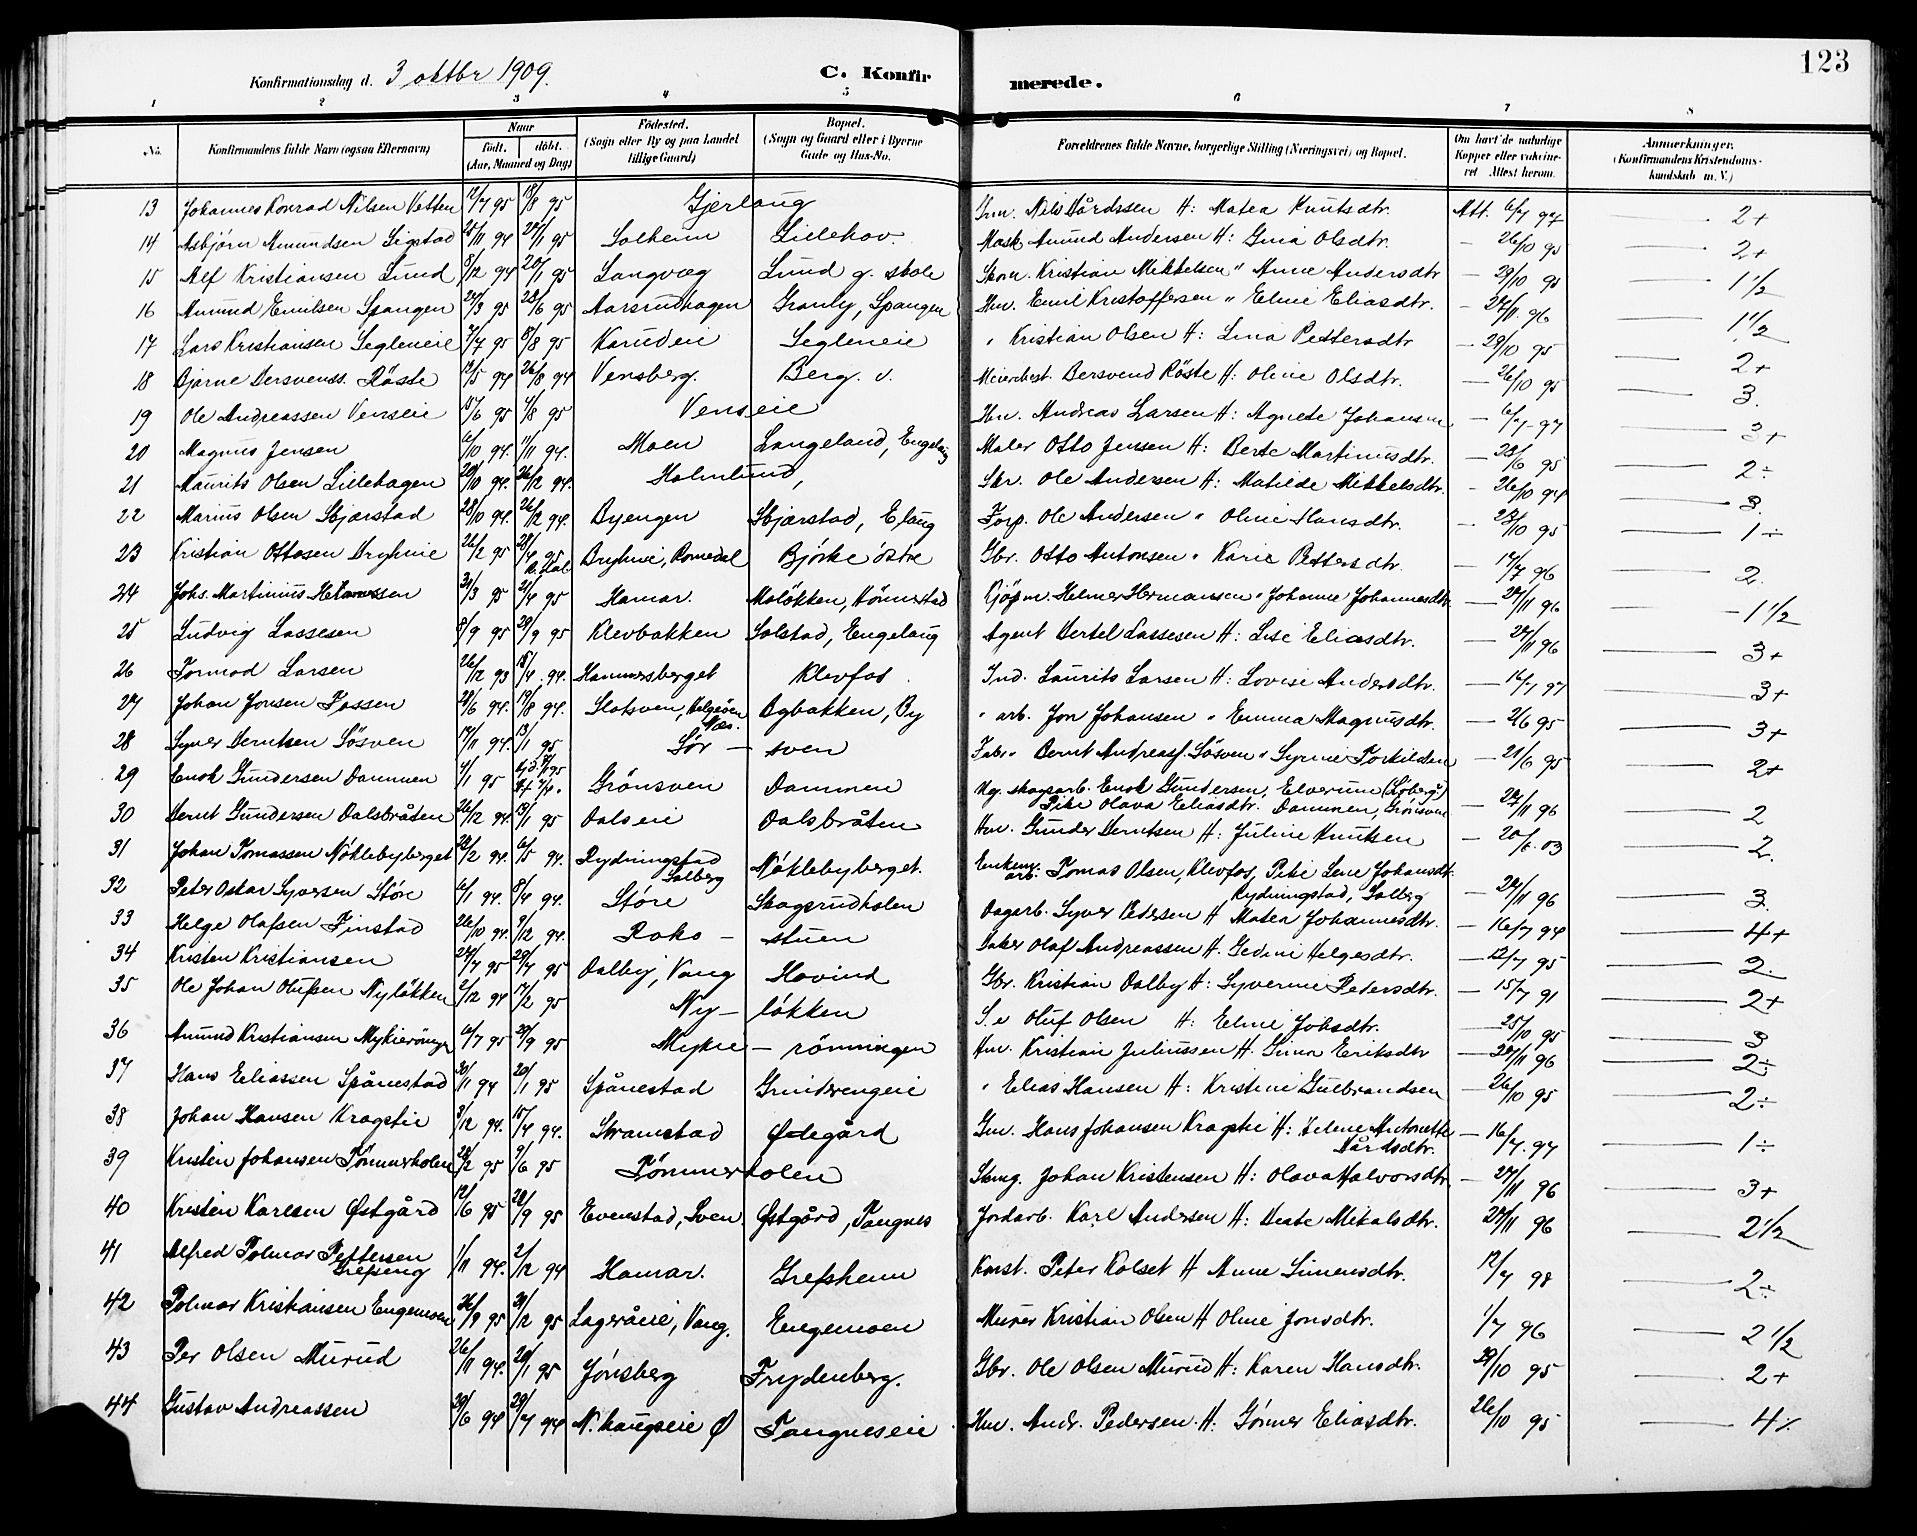 123
Konfirmationsdag d. 3 oktbr 1909.
C. Konfirmerede.
1 2 3 4 5 6 7 8
No. Konfirmandens fulde Navn (ogsaa Efternavn) Naar født. døbt. (Aar, Maaned og Dag) Födested. (Sogn eller By og paa Landet tillige Gaard) Bopæl. (Sogn og Gaard eller i Byerne Gade og Hus-No. Forældrenes fulde Navne, borgerlige Stilling (Næringsvei) og Bopæl. Om havt de naturlige Kopper eller vaccineret Attest herom. Anmerkninger. (Konfirmandens Kristendomskundskab m. V.)
13 Johannes Konrad Nilsen Vetten 12/7 95 18/8 95 Gjerlaug Nils Bårdssen H: Matea Knutsdtr. Att. 6/7 97 2+
14 Asbjörn Amundsen Sigstad 25/11 94 20/1 95 Solheim Lillehov. Amund Andersen H: Gina Olsdtr. 26/10 95 2+
15 Alf Kristiansen Lund 8/12 94 20/1 95 Langvæg Lund g. skole Skom. Kristian Mikkelsen " Anne Andersdtr 29/10 95 1 1/2
16 Amund Emilsen Spangen 24/3 95 23/6 95 Aarsrudhagen Granly, Spangen Hm. Emil Kristoffersen " Eline Eliasdtr. 24/11 96 1 1/2
17 Lars Kristiansen Segleneie 7/7 95 8/8 95 Karudeie Segleneie " Kristian Olsen H: Lina Pettersdtr 29/10 95 2+
18 Bjarne Bersvends. Röste 12/5 94 26/8 94 Vensberg. Berg. v. Meieribest. Bersvend Röste H: Oline Olsdtr. 26/10 95 3.
19 Ole Andreassen Venseie 15/6 95 4/8 95 Venseie Hm. Andreas Larsen H: Agnete Johansen 6/7 97 3+
20 Magnus Jensen 6/10 94. 11/11 94. Moen Langeland, Engelaug Maler Otto Jensen H: Berte Martinusdtr. 23/6 95 2÷
21 Maurits Olsen Lillehagen 20/10 94. 26/12 94. Holmlund, Skr. Ole Andersen H: Matilde Mikkelsdtr. 26/10 94 3.
22 Marius Olsen Skjærstad 28/10 94. 26/12 94. Byengen Skjærstad, Elaug Forp. Ole Andersen " Oline Hansdtr. 27/10 95 1÷
23 Kristian Ottosen Bryhnie 26/2 95 28/4 95 Bryhnie, Romedal Björke östre Gbr. Otto Antonsen " Karie Pettersdtr. 14/7 96 2.
24 Johs. Martinius Helmersen 31/3 95 21/4 95 Hamar. Moløkken, Hönnerstad Helmer Hermansen " Johanne Johannesdtr 24/11 96 1 1/2
25 Ludvig Lassesen 8/9 95 29/9 95 Klevbakken Solstad, Engelaug Agent Bertel Lassesen H: Lise Eliasdtr. 24/11 96 3+
26 Tormod Larsen 26/12 93 15/4 94. Hammersberget Klevfos. Ind. Laurits Larsen H: Lovise Andersdtr. 16/7 97 3+
27 Johan Jonsen Fossen 28/6 94. 19/8 94. Slotsven, Helgöen Næs. Bybakken, By " arb. Jon Johansen " Emma Magnusdtr. 2/6 95 3+
28 Syver Berntsen Sösven 17/11 94. 13/1 95 Sör — sven Fabr. " Bernt Andreass. Sösven " Syrine Torkildsen 21/6 95 2+
29 Enok Gundersen Dammen 4/1 95 Grönsven Dammen Ug. skogsarb. Enok Gundersen, Elverum (Löberg) Pike Olava Eliasdtr. Dammen, Grönsven 27/11 96 2
30 Bernt Gundersen Dalsbråten 26/12 94. 13/1 95 Dalseie Dalsbråten Hm. Gunder Berntsen H: Juline Knutsen 20/6. 03 2.
31 Johan Tomassen Nöklebyberget 22/2 94. 6/5 94. Rydningstad Solberg Nöklebyberget. Enkem. arb. Tomas Olsen, Klevfos, Pike Lene Johansdtr. Rydningstad, Solberg 24/11 96 3.
32 Peter Oskar Syversen Störe 6/1 94. 8/4 94. Störe Skogsrudholen Dagarb. Syver Pedersen H Matea Johannesdtr. 16/7 94 4+
33 Helge Olafsen Finstad 26/10 94. 9/12 94. Roko — stuen Baker Olaf Andreassen H. Gedine Helgesdtr. 12/7 95 2.
34 Kristen Kristiansen 24/7 95 29/7 95 Dalby, Vang Hovind Gbr. Kristian Dalby H: Syverine Petersdtr. 15/7 91 2+
35 Ole Johan Olufsen Nyløkken 2/12 94 17/2 95 Ny — løkken S.e. Oluf Olsen H: Eline Johsdtr. 25/10 95 3
36 Amund Kristiansen Mykierönningen 6/7 95 29/9 95 Mykie — rönningen Hm. Kristian Juliussen H. Gina Eriksdtr 24/11 96 2÷
37 Hans Eliassen Spånestad 30/11 94 20/1 95 Spånestad Grindvengeie " Elias Hansen H: Kristine Gulbrandsen 26/10 95 2÷
38 Johan Hansen Kragstie 3/12 94. 15/4 94. Stramstad Ødegård Gm. Hans Johansen Kragstie H: Helene Antonette Bårdsdtr. 16/7. 97 1÷
39 Kristen Johansen Tömmerholen 28/2 95 9/6 95 Tömmerholen Johan Kristensen H: Olava Halvorsdtr. 24/11 96 3+
40 Kristen Karlsen Østgård 12/6 95 22/9 95 Evenstad, Sven Østgård, Tangnes Jordarb. Karl Andersen H: Beate Mikalsdtr. 24/11 96 2 1/2
41 Alfred Tolmar Pettersen Grefseng 1/11 94. 2/12 94 Hamar. Grefsheim Konst. Peter Kolset H Anne Simensdtr. 12/7 98 2÷
42 Tolmar Kristiansen Engemoen 26/9 95 31/12 95 Lageråeie, Vang. Engemoen Murer Kristian Olsen H Oline Jonsdtr. 1/7 96 2 1/2
43 Per Olsen Murud 26/11 94. 20/1 95 Jönsberg Frydenberg. Gbr. Ole Olsen Murud H: Karen Hansdtr. 29/10 95 2+
44 Gustav Andreassen 30/6 94 29/7 94 N. Haugseie Ø Tangneseie Hm. Andr. Pedersen H: Gönner Eliasdtr. 26/10 95 4÷